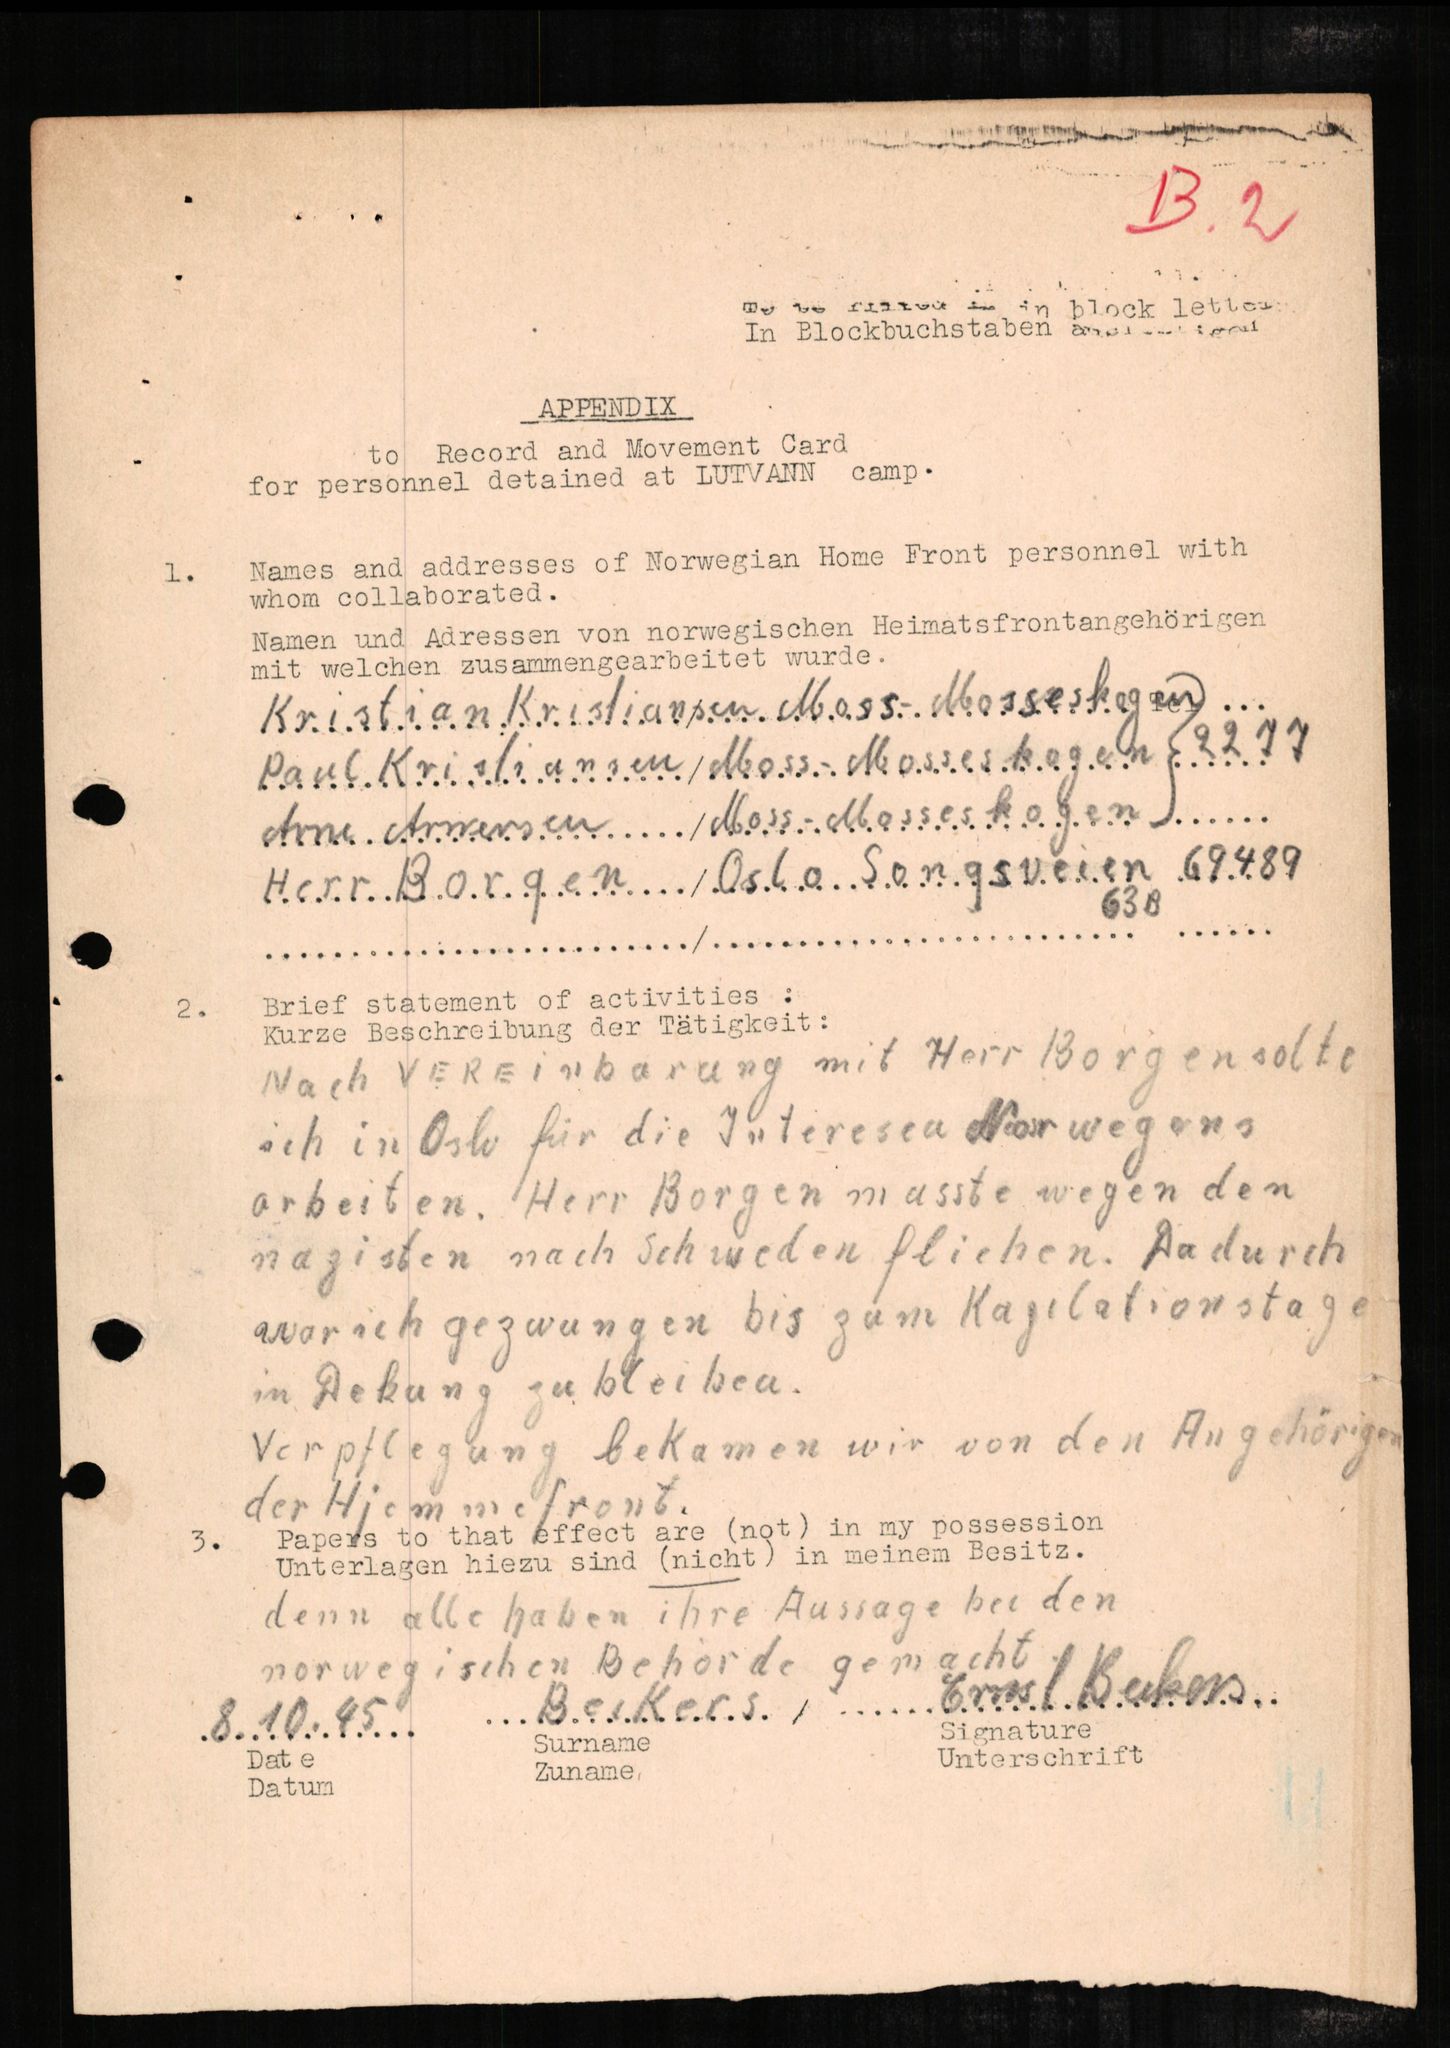 B. 2
To be filled in in block letters
In Blockbuchstaben
APPENDIX
to Record and Movement Card
for personnel detained at LUTVANN camp.
1. Names and addresses of Norwegian Home Front personnel with
whom collaborated.
Namen und Adressen von norwegischen Heimatsfrontangehörigen
mit welchen zusammengearbeitet wurde.
Kristian Kristiansen Moss-Mosseskogen
Paul Kristiansen / Moss-Mosseskogen } 2277
Arne / Moss-Mosseskogen
Herr Borgen / Oslo Songsveien 69489
63B
2. Brief statement of activities :
Kurze Beschreibung der Tätigkeit:
Nach VEREinbarung mit Herr Borgen solte
ich in Oslo für die Interesen Norwegens
arbeiten. Herr Borgen musste wegen den
nazisten nach Schweden fliehen. Dadurch
war ich gezwungen bis zum Kapilationstage
in Dekung zu bleiben.
Verpflegung bekamen wir von den Angehörigen
der Hjemmefront.
3. Papers to that effect are (not) in my possession
Unterlagen hiezu sind (nicht) in meinem Besitz.
denn alle haben ihre Aussage bei den
norwegischen Behörde gemacht.
8.10.45 Beikers / Ernst
Date Surname Signature
Datum Zuname Unterschrift